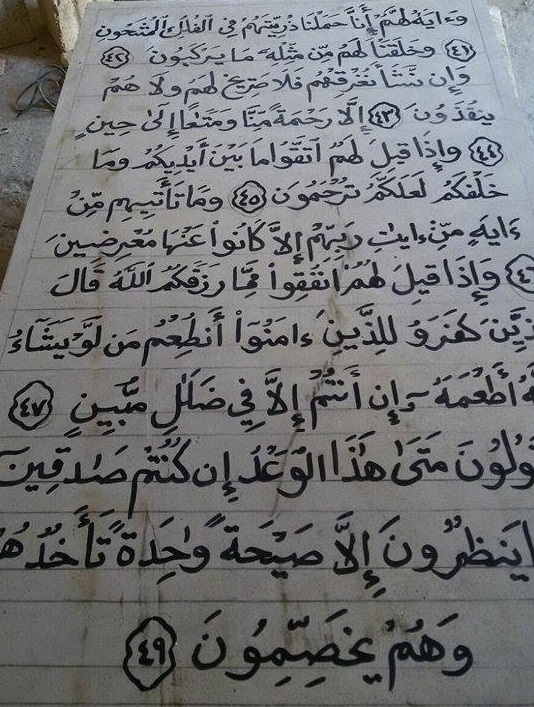 وَءَايَةٌ لَّهُمْ أَنَّا حَمَلْنَا ذُرِّيَّتَهُمْ فِي الْفُلْكِ الْمَشْحُونِ
٤١ وَخَلَقْنَا لَهُم مِّن مِّثْلِهِ مَا يَرْكَبُونَ ٤٢
وَإِن نَّشَأْ نُغْرِقْهُمْ فَلَا صَرِيخَ لَهُمْ وَلَا هُمْ
يُنقَذُونَ ٤٣ إِلَّا رَحْمَةً مِّنَّا وَمَتَٰعًا إِلَىٰ حِينٍ
٤٤ وَإِذَا قِيلَ لَهُمُ اتَّقُوا مَا بَيْنَ أَيْدِيكُمْ وَمَا
خَلْفَكُمْ لَعَلَّكُمْ تُرْحَمُونَ ٤٥ وَمَا تَأْتِيهِم مِّنْ
ءَايَةٍ مِّنْ ءَايَٰتِ رَبِّهِمْ إِلَّا كَانُوا عَنْهَا مُعْرِضِينَ
٤٦ وَإِذَا قِيلَ لَهُمْ أَنفِقُوا مِمَّا رَزَقَكُمُ اللَّهُ قَالَ
كَفَرُو لِلَّذِينَ ءَامَنُوٓا أَنُطْعِمُ مَن لَّوْ يَشَآءُ
أَطْعَمَهُ إِنْ أَنتُمْ إِلَّا فِي ضَلَٰلٍ مُّبِينٍ ٤٧
مَتَىٰ هَٰذَا الْوَعْدُ إِن كُنتُمْ صَٰدِقِينَ
يَنظُرُونَ إِلَّا صَيْحَةً وَٰحِدَةً
وَهُمْ يَخِصِّمُونَ ٤٩